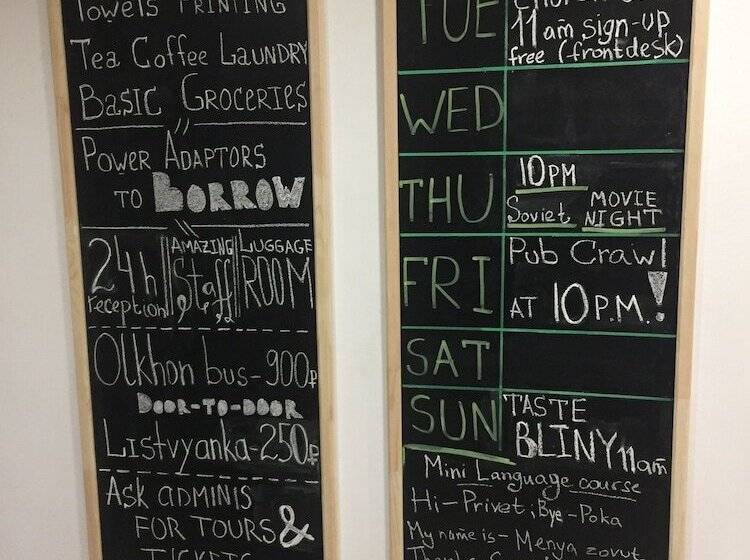 Towels PRINTING
Tea Coffee LAUNDRY
BASIC GROCERIES
POWER ADAPTORS
TO BORROW
24h
reception
AMAZING
Staff
LUGGAGE
ROOM
Olkhon bus-900₽
DOOR-TO-DOOR
Listvyanka-250₽
ASK ADMINIS
FOR TOURS &
TICKETS
TUE
11am sign-up
free (frontdesk)
WED
THU
10PM
Soviet MOVIE
NIGHT
FRI
Pub Crawl
AT 10P.M.!
SAT
SUN
TASTE
BLINY 11am
Mini Language course
Hi-Privet; Bye-Poka
My name is - Menya zovut